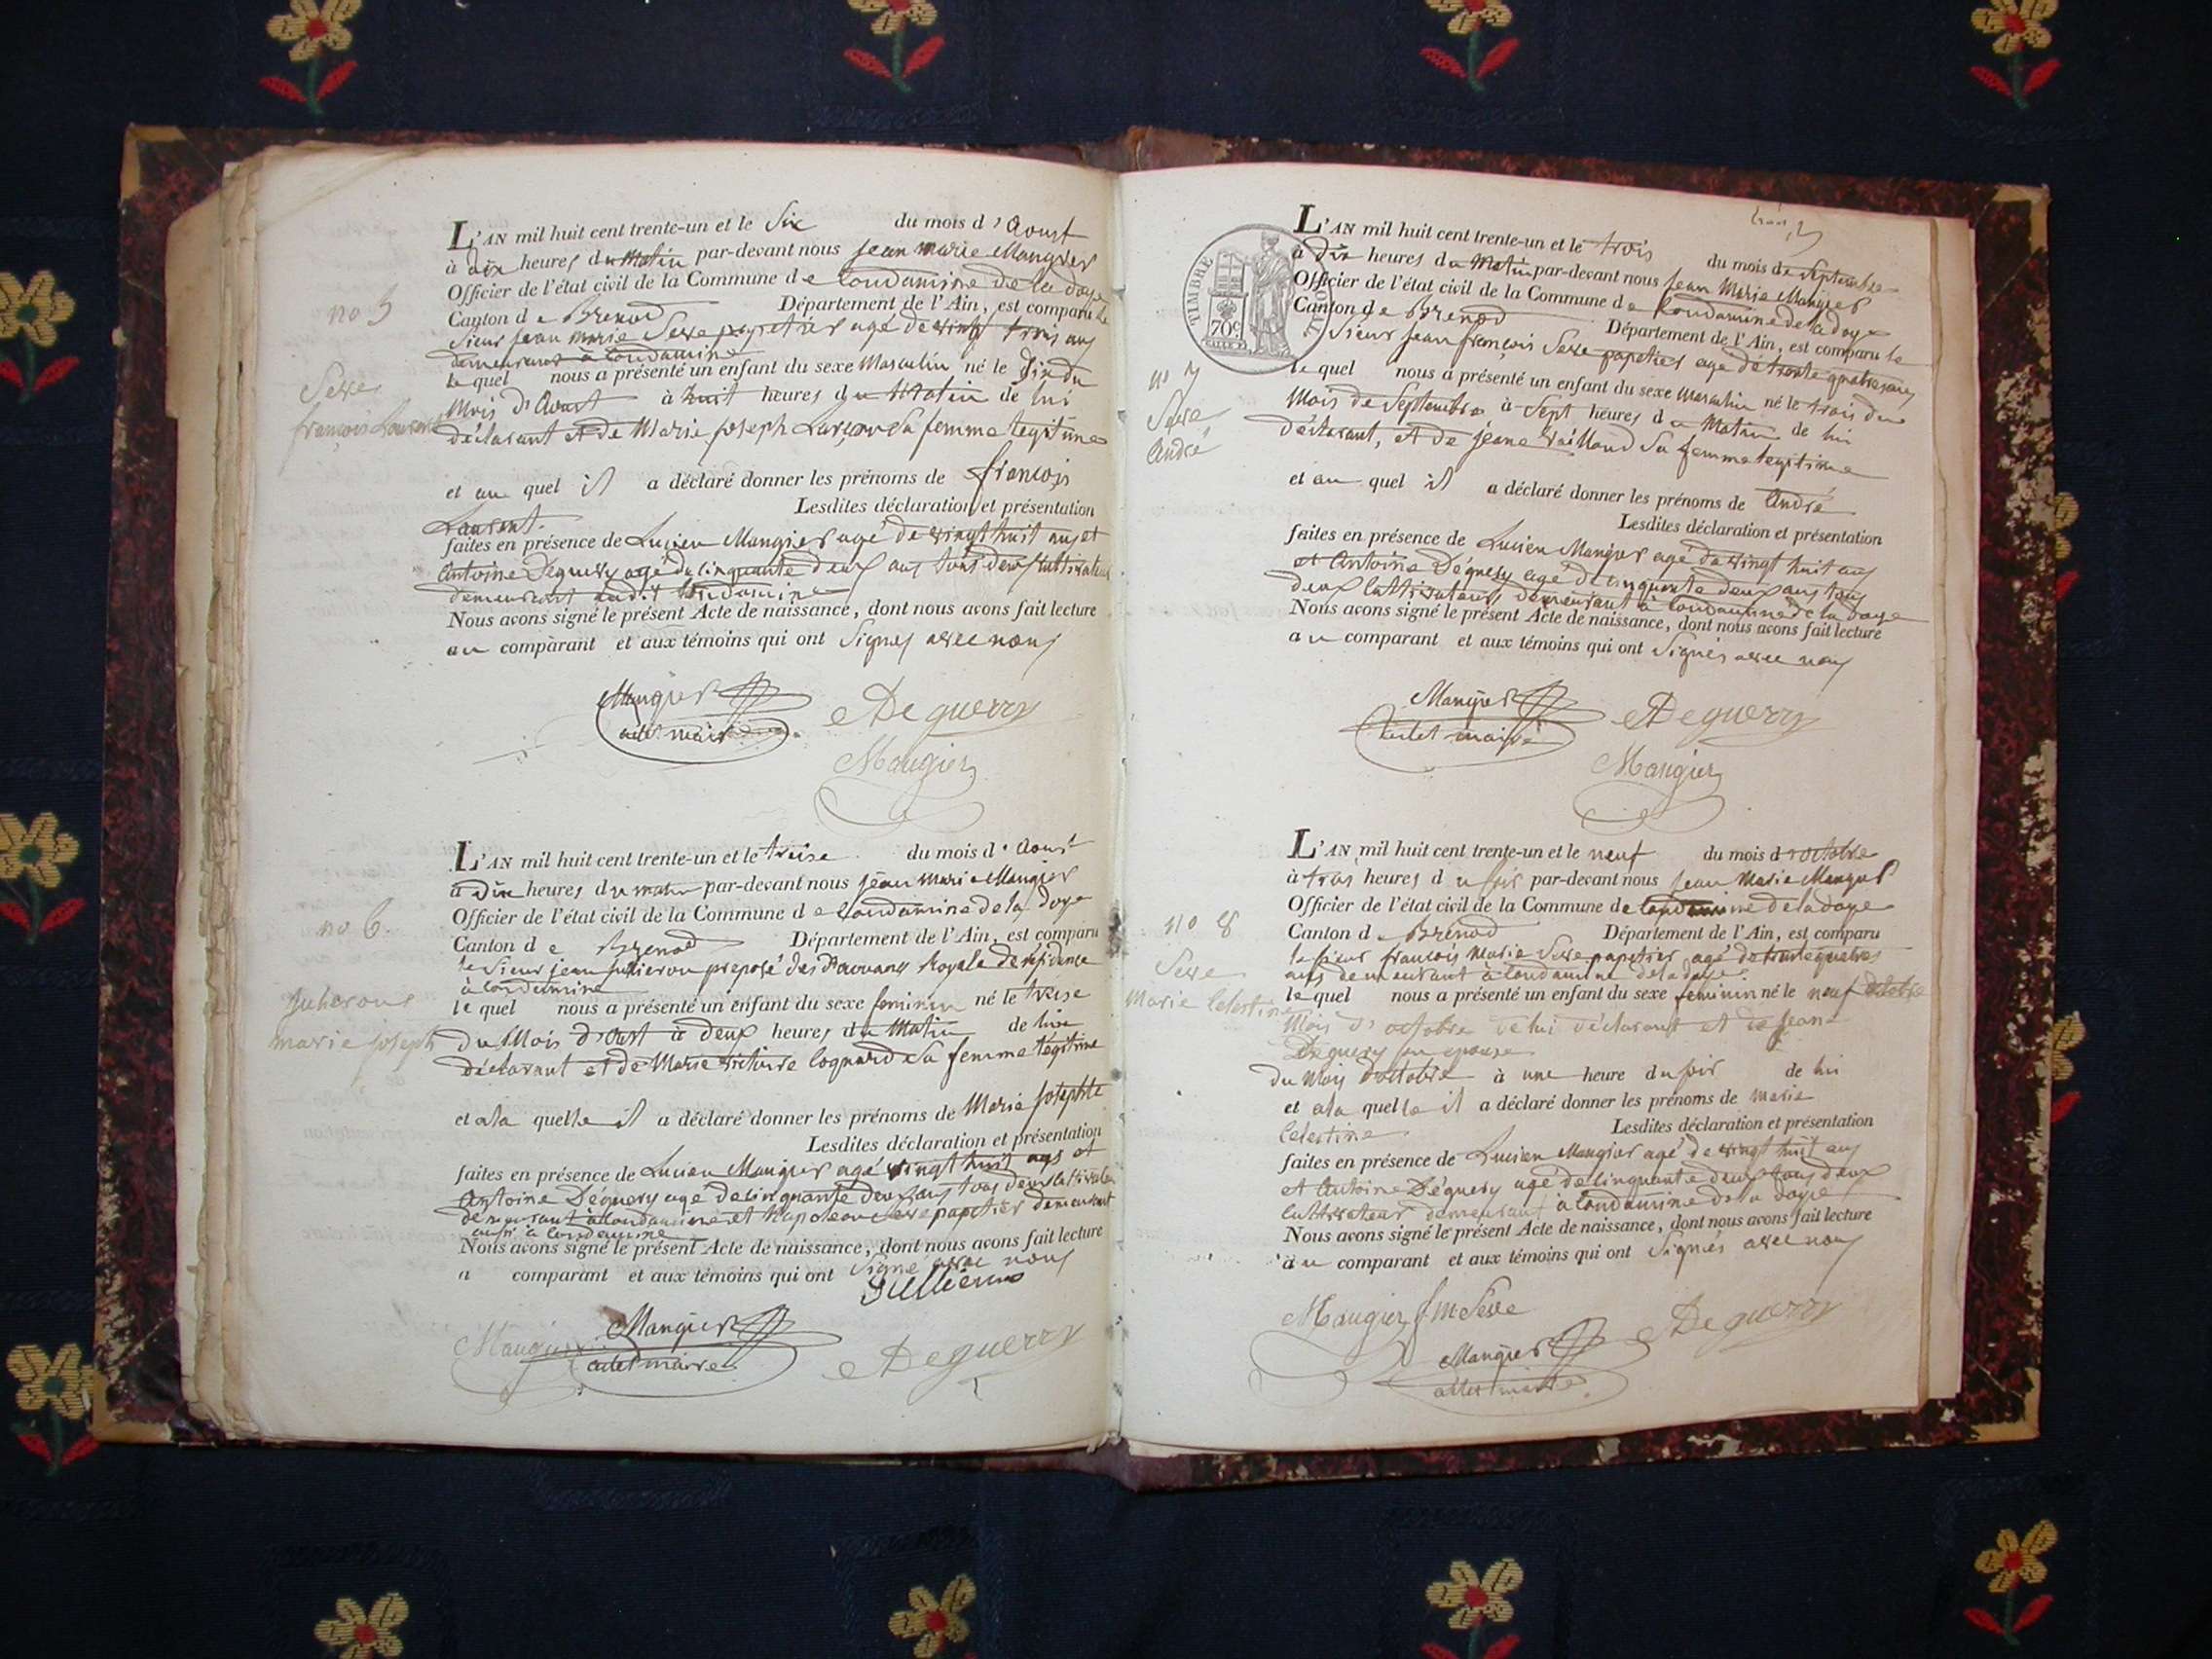 L'AN mil huit cent trente-un et le Six du mois d'Aoust
à dix heures du Matin par-devant nous jean marie Mangier
Officier de l'état civil de la Commune de Condamine de la doye
Canton de Brenod Département de l'Ain, est comparu le
Sieur jean marie Serre papetier agé de vingt trois ans
demeurant à Condamine
no 5
Serre
françois Laurent
le quel nous a présenté un enfant du sexe Masculin né le Six du
Mois d'Aoust à huit heures du Matin de lui
déclarant et de Marie joseph sa femme legitime
et au quel il a déclaré donner les prénoms de françois
Laurent. Lesdites déclaration et présentation
faites en présence de Lucien Mangier agé de vingt huit ans et
Antoine Déguery agé de cinquante deux ans tous deux Cultivateurs
demeurant audit Condamine
Nous avons signé le présent Acte de naissance, dont nous avons fait lecture
au comparant et aux témoins qui ont Signés avec nous
Mangier
adet maire
Deguerry
Maugier
L'AN mil huit cent trente-un et le treise du mois d'Aoust
à Dix heures du matin par-devant nous jean marie Mangier
Officier de l'état civil de la Commune de Condamine de la doye
Canton de Brenod Département de l'Ain, est comparu
le Sieur jean preposé des Douanes Royale de résidence
à Condamine
no 6.
marie joseph
le quel nous a présenté un enfant du sexe feminin né le treise
du Mois d'Oust à deux heures du Matin de lui
déclarant et de Marie victoire Coquard sa femme légitime
et a la quelle il a déclaré donner les prénoms de Marie josephte
Lesdites déclaration et présentation
faites en présence de Lucien Mangier agé vingt huit ans et
Antoine Déguery agé de cinquante deux ans tous deux cultivateur
demeurant à Condamine et Napoleon Serre papetier demeurant
aussi à Condamine
Nous avons signé le présent Acte de naissance, dont nous avons fait lecture
a comparant et aux témoins qui ont Signé avec nous
Mangier
Maugier
adet maire
Deguerry
L'AN mil huit cent trente-un et le trois du mois de Septembre
à Dix heures du Matin par-devant nous jean Marie Mangier
Officier de l'état civil de la Commune de Condamine de la doye
Canton de Brenod Département de l'Ain, est comparu le
Sieur jean françois Serre papetier agé de trente quatre ans
TIMBRE ROYAL
70c
no 7
Serre
André
le quel nous a présenté un enfant du sexe masculin né le trois du
Mois de Septembre à Sept heures du Matin de lui
déclarant, et de jeane Vailloud sa femme legitime
et au quel il a déclaré donner les prénoms de André
Lesdites déclaration et présentation
faites en présence de Lucien Mangier agé de vingt huit ans
et Antoine Déguery agé de cinquante deux ans tous
deux Cultivateurs demeurant à Condamine de la doye
Nous avons signé le présent Acte de naissance, dont nous avons fait lecture
au comparant et aux témoins qui ont Signés avec nous
Mangier
adet maire
Deguerry
Maugier
L'AN mil huit cent trente-un et le neuf du mois d'octobre
à trois heures du soir par-devant nous jean Marie Mangier
Officier de l'état civil de la Commune de Condamine de la doye
Canton de Brenod Département de l'Ain, est comparu
le sieur françois Marie Serre papetier agé de trente quatre
ans demeurant à Condamine de la doye
no 8
Serre
Marie Celestine
le quel nous a présenté un enfant du sexe feminin né le neuf octobre
Mois d'octobre de lui déclarant et de jeane
Déguery son épouse
du Mois d'octobre à une heure du soir de lui
et a la quelle il a déclaré donner les prénoms de marie
Celestine Lesdites déclaration et présentation
faites en présence de Lucien Mangier agé de vingt huit ans
et Antoine Déguery agé de cinquante deux tous deux
Cultivateur demeurant à Condamine de la doye
Nous avons signé le présent Acte de naissance, dont nous avons fait lecture
au comparant et aux témoins qui ont Signés avec nous
Maugier fm Serre
Mangier
adet maire
Deguerry